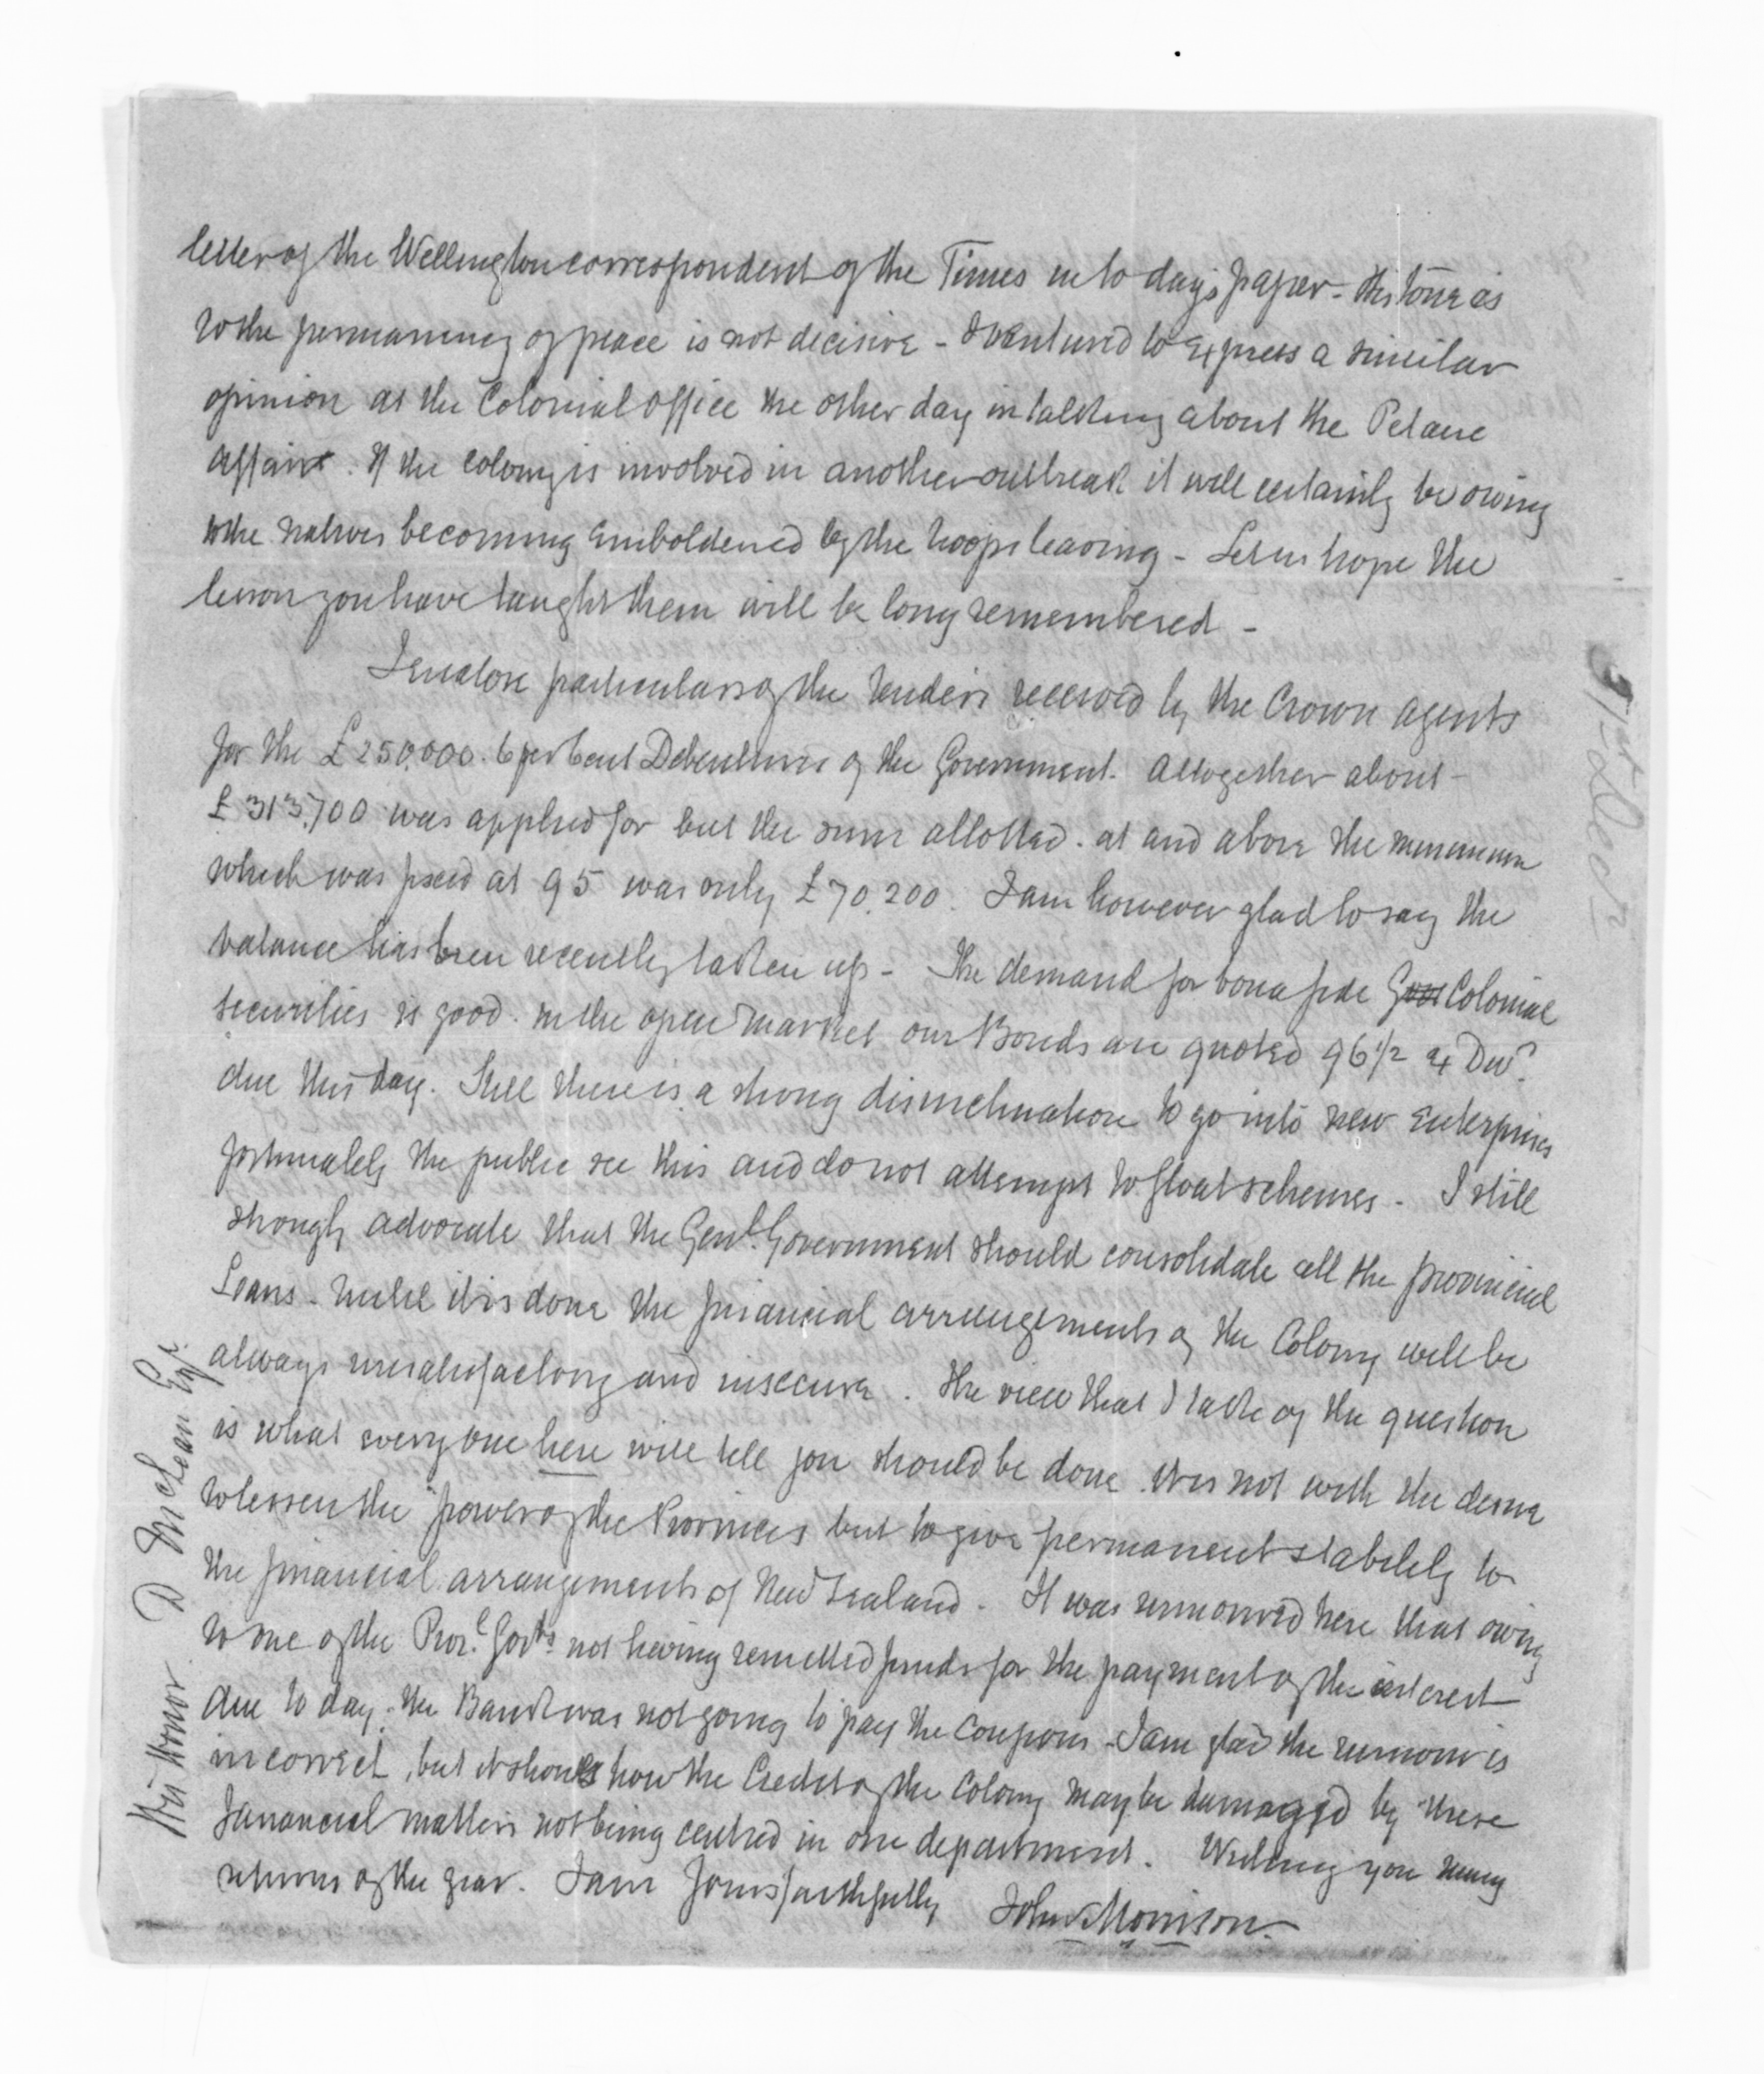 letter of the Wellington correspondent of the Times in to day's paper - His tone as
to the permanency of peace is not decisive - I ventured to express a similar
opinion at the Colonial Office the other day in talking about the Petane
affair. If the colony is involved in another outbreak it will certainly be owing
to the natives becoming emboldened by the troops leaving - Let us hope the
lesson you have taught them will be long remembered -
I enclose particulars of the tenders received by the Crown Agents
for the £250,000. 6 per Cent Debentures of the Government. Altogether about
£313,700 was applied for but the sum allotted. at and above the minimum
which was fixed at 95 was only £70,200. I am however glad to say the
balance has been recently taken up - The demand for bona fide Colonial
securities is good. In the open market our Bonds are quoted 96 1/2 ex Div.
due this day. Still there is a strong disinclination to go into new enterprises
fortunately the public see this and do not attempt to float schemes - I still
strongly advocate that the Genl. Government should consolidate all the provincial
Loans - Until it is done the financial arrangements of the Colony will be
always unsatisfactory and insecure. The view that I take of the question
is what every one here will tell you should be done. It is not with the desire
to lessen the power of the Provinces but to give permanent stability to
the financial arrangements of New Zealand. It was rumoured here that owing
to one of the Provl. Govts. not having remitted funds for the payment of the interest
due to day. the Bank was not going to pay the coupons - I am glad the rumour is
incorrect, but it shows how the Credit of the Colony may be damaged by these
financial matters not being centred in one department. Wishing you many
returns of the year. I am Yours faithfully John Morrison.
His Honor D McLean Esqr.